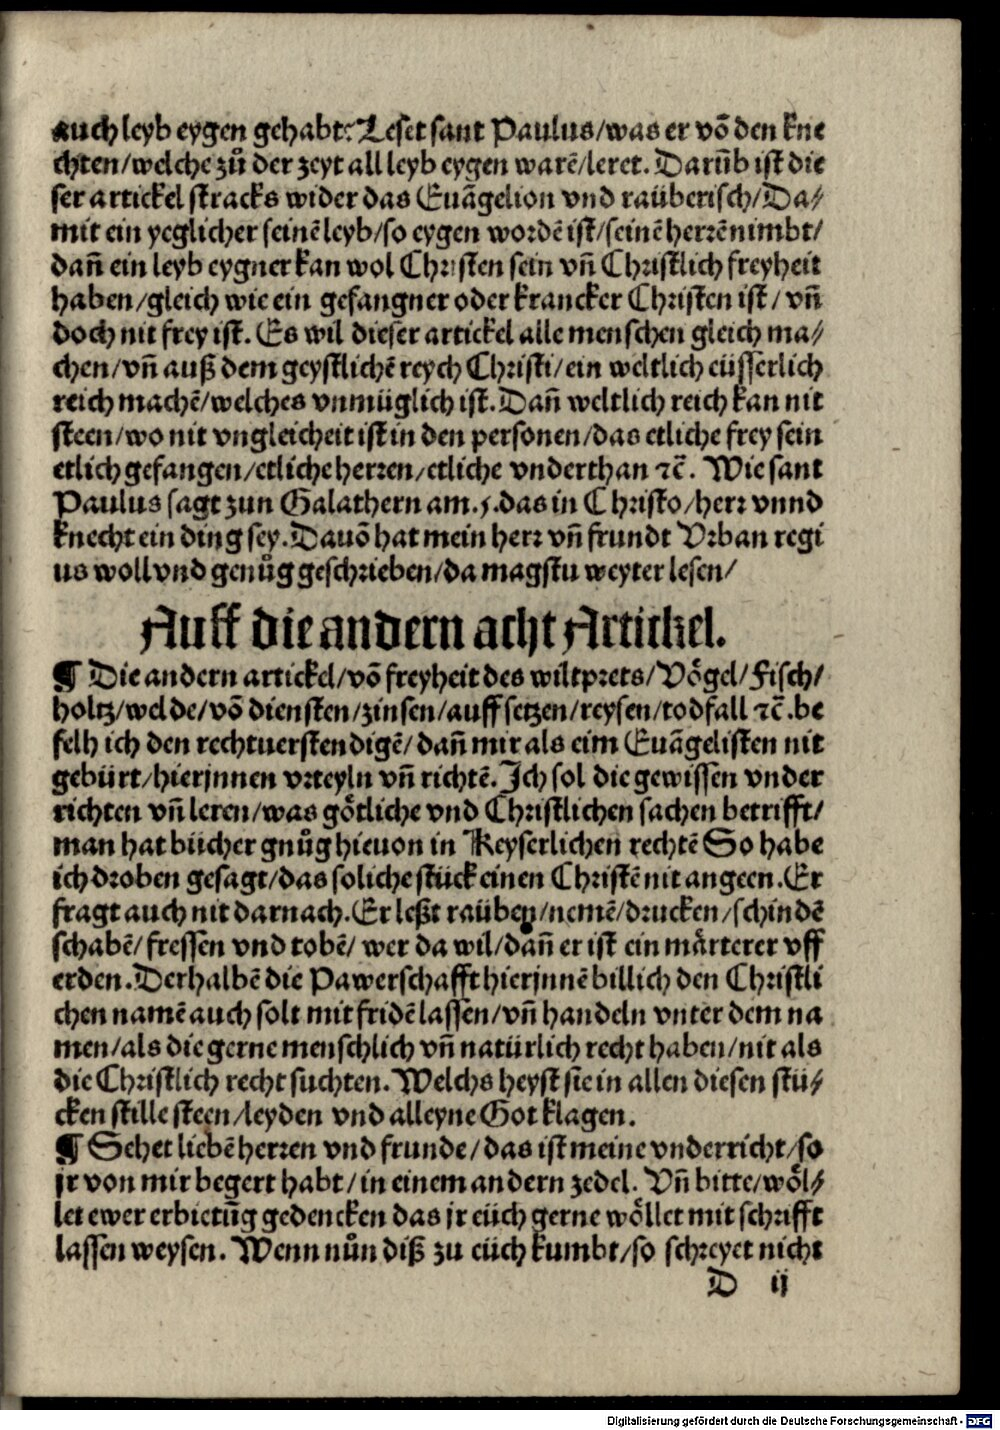 auch leyb eygen gehabt? Leset sant Paulus/was er võ den kne
chten/welche zů der zeyt all leyb eygen warẽ/leret. Darũb ist die
ser artickel stracks wider das Euãgelion vnd raüberisch/Da⸗
mit ein yeglicher seinẽ leyb/so eygen wordẽ ist/seinẽ herrẽ nimbt/
dañ ein leyb eygner kan wol Christen sein vñ Christlich freyheit
haben/gleich wie ein gefangner oder krancker Christen ist/vñ
doch nit frey ist. Es wil dieser artickel alle menschen gleich ma⸗
chen/vñ auß dem geystlichẽ reych Christi/ein weltlich eüsserlich
reich machẽ/welches vnmüglich ist. Dañ weltlich reich kan nit
steen/wo nit vngleicheit ist in den personen/das etliche frey sein
etlich gefangen/etliche herren/etliche vnderthan ⁊c̃. Wie sant
Paulus sagt zun Galathern am .5. das in Christo/herr vnnd
knecht ein ding sey. Dauõ hat mein herr vñ frundt Vrban regi
us woll vnd genůg geschrieben/da magstu weyter lesen/
Auff die andern acht Artickel.
¶ Die andern artickel/võ freyheit des wiltprets/Vögel/Fisch/
holtz/welde/võ diensten/zinsen/auff setzen/reysen/todfall ⁊c̃. be
felh ich den rechtuerstendigẽ/dañ mir als eim Euãgelisten nit
gebürt/hierjnnen vrteyln vñ richtẽ. Ich sol die gewissen vnder
richten vñ leren/was götliche vnd Christlichen sachen betrifft/
man hat bücher gnůg hieuon in Keyserlichen rechtẽ So habe
ich droben gesagt/das soliche stück einen Christẽ nit angeen. Er
fragt auch nit darnach. Er leßt raüben/nemẽ/drucken/schindẽ
schabẽ/fressen vnd tobẽ/wer da wil/dañ er ist ein märterer vff
erden. Derhalbẽ die Pawerschafft hierjnnẽ billich den Christli
chen namẽ auch solt mit fridẽ lassen/vñ handeln vnter dem na
men/als die gerne menschlich vñ natürlich recht haben/nit als
die Christlich recht suchten. Welchs heyst sie in allen diesen stü⸗
cken stille steen/leyden vnd alleyne Got klagen.
¶ Sehet liebẽ herren vnd frunde/das ist meine vnderricht/so
jr von mir begert habt/in einem andern zedel. Vñ bitte/wöl⸗
let ewer erbietũg gedencken das jr eüch gerne wöllet mit schrifft
lassen weysen. Wenn nůn diß zu eüch kumbt/so schreyet nicht
D ij
Digitalisierung gefördert durch die Deutsche Forschungsgemeinschaft - DFG